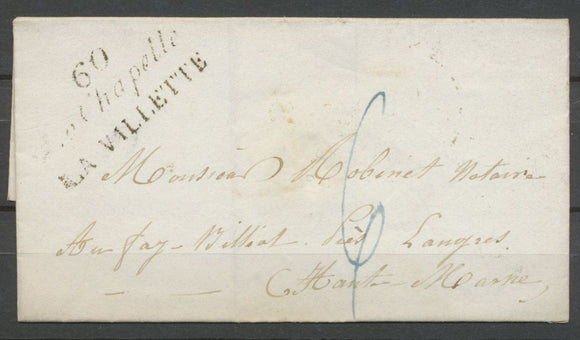 60
La Chapelle
LA VILLETTE
Monsieur Robinet Notaire
Au fay-Billiot près Langres.
Haute Marne
6